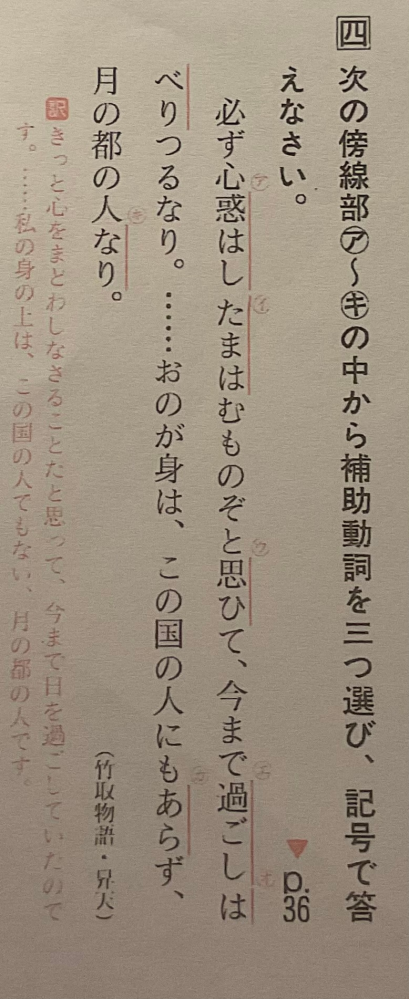 四 次の傍線部㋐～㋖の中から補助動詞を三つ選び、記号で答
えなさい。 ▼p.36
必ず心惑はしたまはむものぞと思ひて、今まで過ごしは
べりつるなり。……おのが身は、この国の人にもあらず、
月の都の人なり。 （竹取物語・昇天）
㋐
㋑
㋒
㋓
㋔
㋕
㋖
訳 きっと心をまどわしなさることだと思って、今まで日を過ごしていたので
す。……私の身の上は、この国の人でもない、月の都の人です。